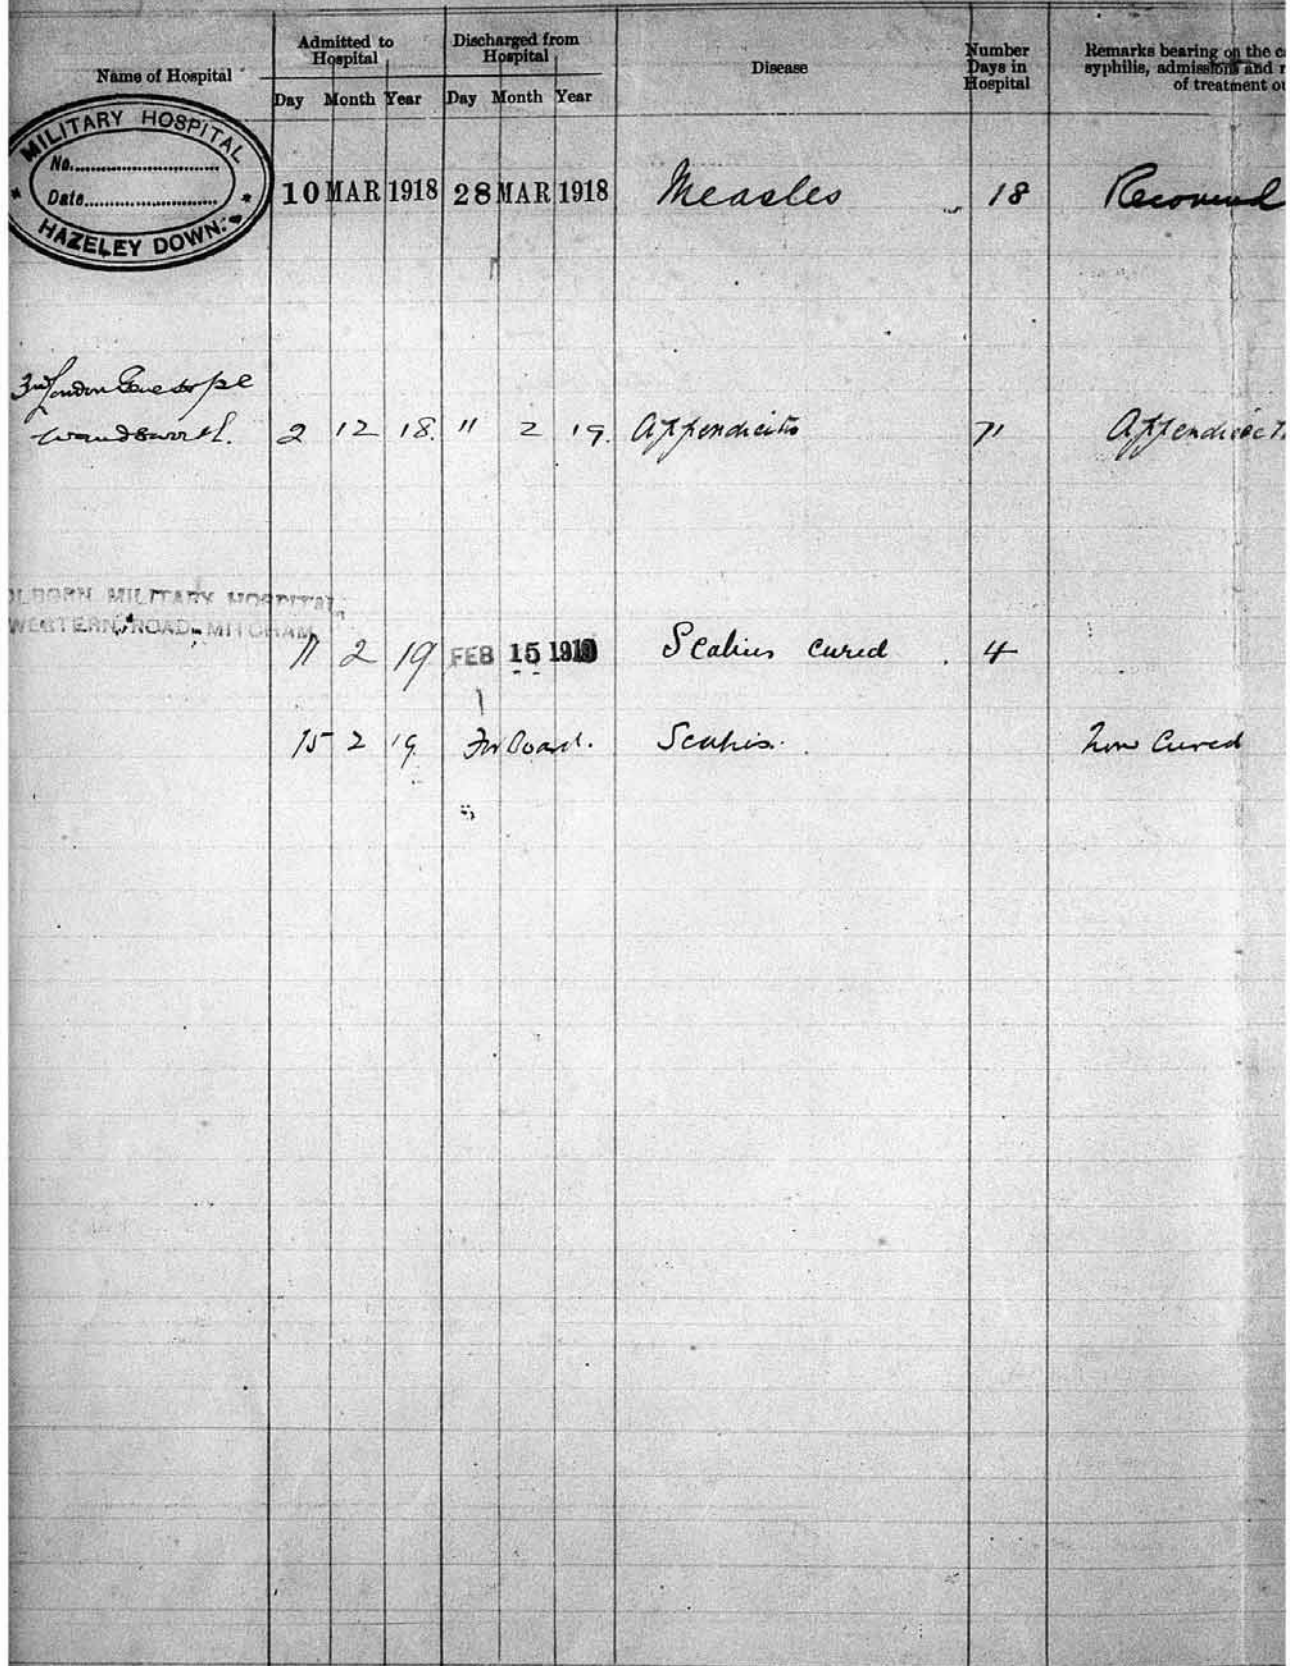 Name of Hospital
Admitted to
Hospital
Day Month Year
Discharged from
Hospital
Day Month Year
Disease
Number
Days in
Hospital
Remarks bearing on the c
syphilis, admissions and r
of treatment ou
MILITARY HOSPITAL
No.
Date
HAZELEY DOWN.
10 MAR 1918 28 MAR 1918 Measles 18 Recovered
3rd London
Wandsworth. 2 12 18. 11 2 19. Appendicitis 71
OLBORN MILITARY HOSPITAL,
WESTERN ROAD MITCHAM
11 2 19 FEB 15 1919 Scabies cured 4
15 2 19 For Board. Scabies. Now Cured